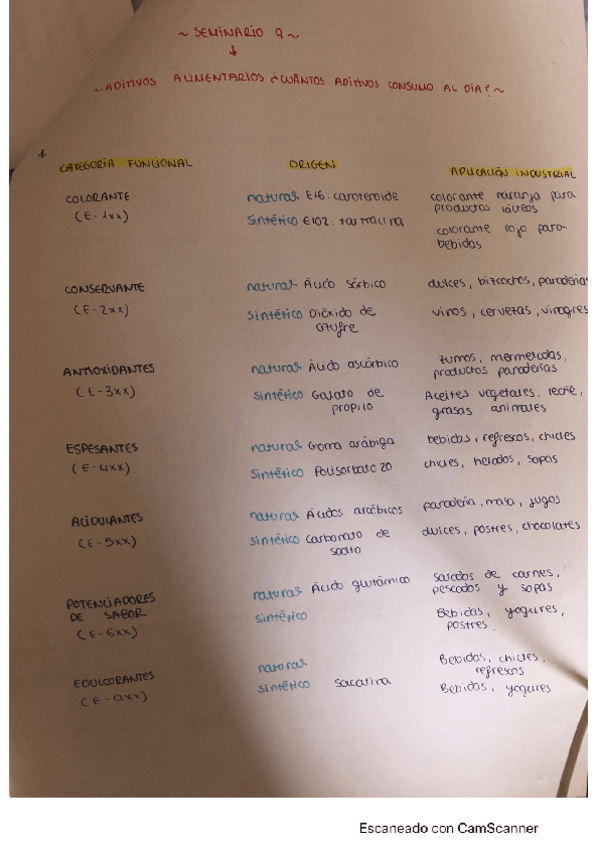 ~ SEMINARIO 9 ~
~ ADITIVOS ALIMENTARIOS ¿CUÁNTOS ADITIVOS CONSUMO AL DIA? ~
1.
CATEGORIA FUNCIONAL ORIGEN APLICACIÓN INDUSTRIAL
COLORANTE natural E16: carotenoide colorante naranja para
(E-1xx) productos lácteos
sintético E102: tartracina colorante rojo para
bebidas
CONSERVANTE natural Ácido sórbico dulces, bizcochos, panaderia
(E-2xx) sintético Dióxido de vinos, cervezas, vinagres
azufre
ANTIOXIDANTES natural Ácido ascórbico zumos, mermeladas,
productos panaderias
(E-3xx) sintético Galato de Aceites vegetales, leche,
propilo grasas animales
ESPESANTES natural Goma arábiga bebidas, refrescos, chicles
(E-4xx) sintético Polisorbato 20 chicles, helados, sopas
ACIDULANTES natural Ácidos panaderia, masa, jugos
(E-5xx) sintético Carbonato de dulces, postres, chocolates
sodio
POTENCIADORES natural Ácido glutámico de carnes,
DE SABOR pescados y sopas
(E-6xx) sintético Bebidas, yogures,
postres.
EDULCORANTES natural Bebidas, chicles,
refrescos
(E-9xx) sintético sacarina Bebidas, yogures
Escaneado con CamScanner